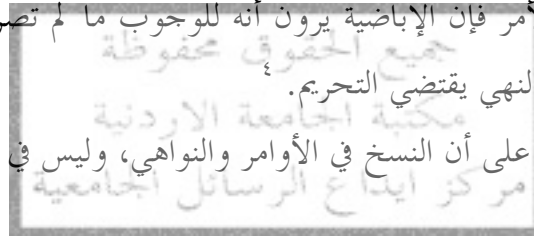 أمر فإن الإباضية يرون أنه للوجوب ما لم
جميع الحقوق محفوظة
لنهي يقتضي التحريم. ٤
مكتبة الجامعة الاردنية
على أن النسخ في الأوامر والنواهي، وليس في
مركز ايداع الرسائل الجامعية